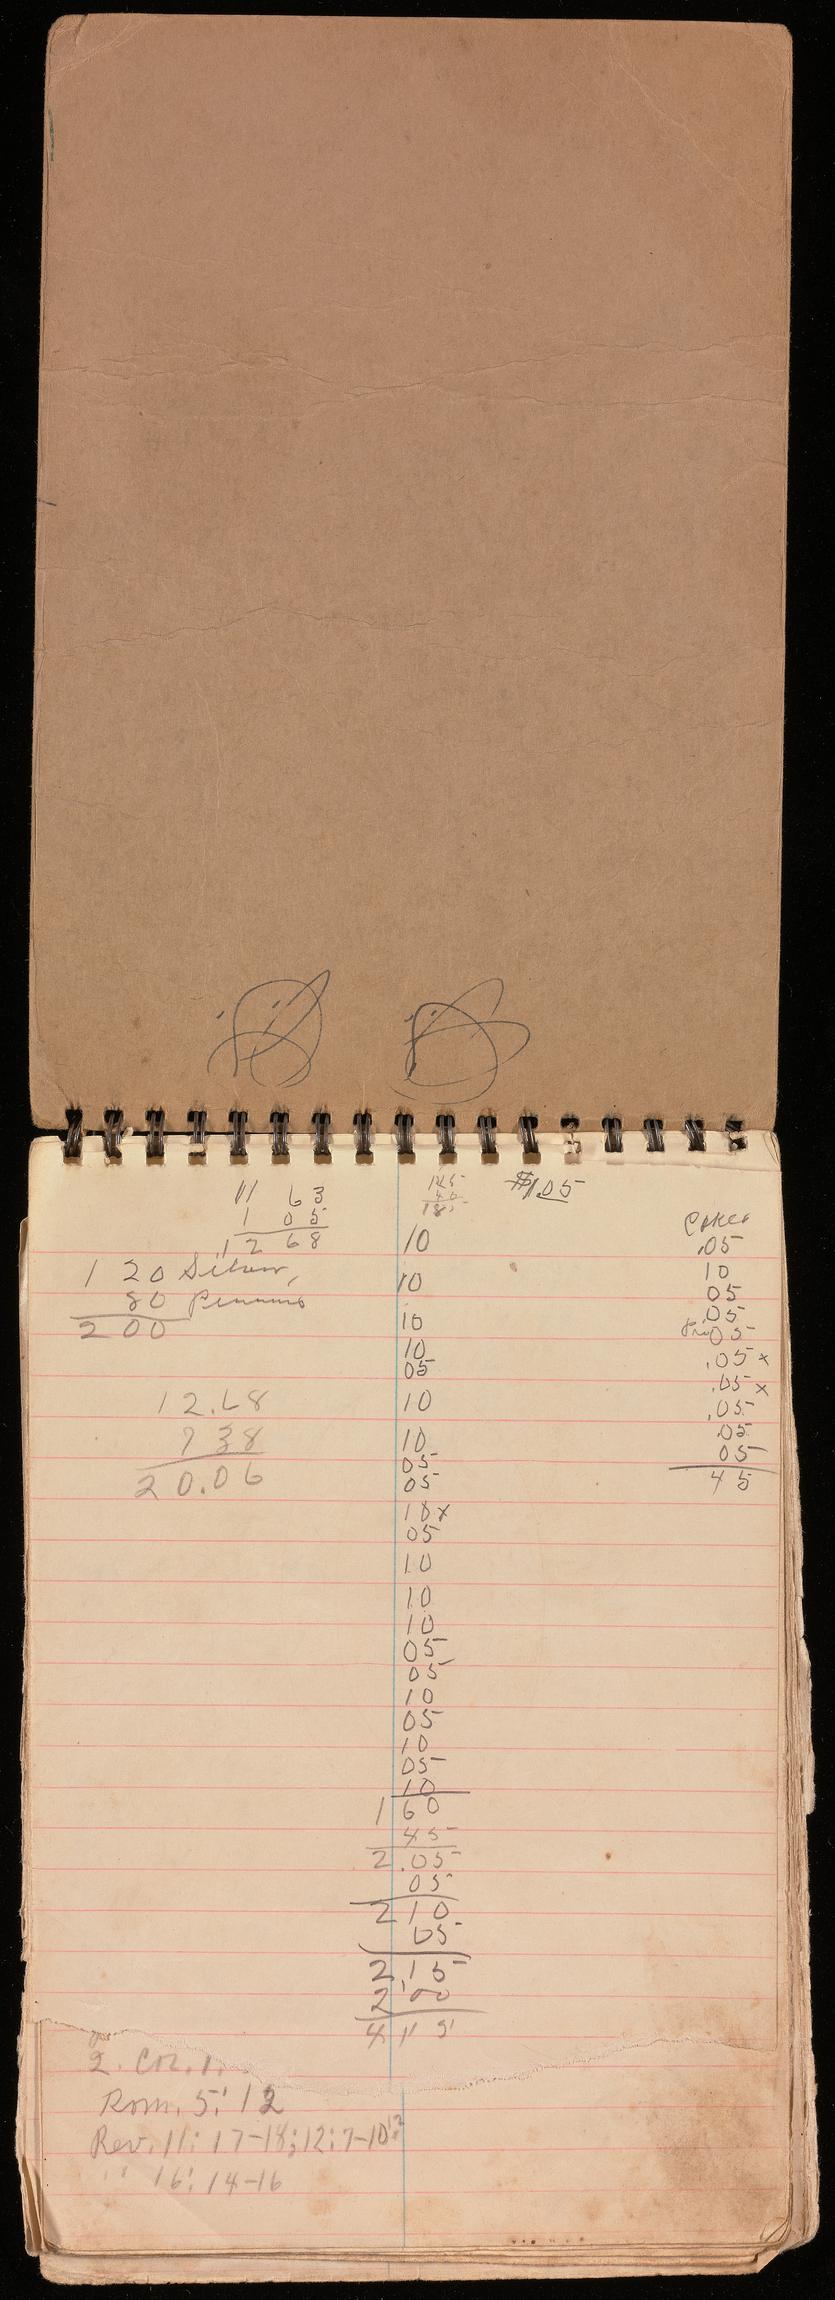 11 63
1 05
12 68
1 20 Silver,
80 Pennies
2 00
12.68
7 38
20.06
$1.05
10
10
10
10
05
10
10
05
05
10x
05
10
10
10
05
05
10
05
10
05
10
1 60
45
2.05
05
2 10
05
2.15
2 00
4 15
Cokes
.05
10
05
.05
05
.05 x
.05 x
.05
.05
05
45
2. Cor. 1.
Rom. 5:12
Rev. 11:17-18; 12:7-10
" 16:14-16